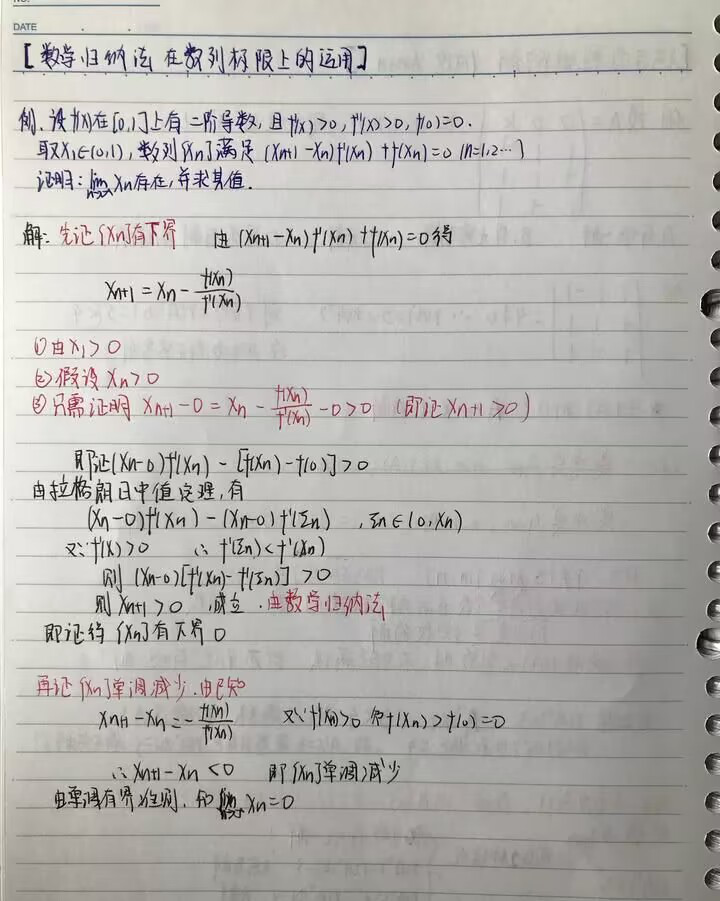 DATE
【数学归纳法在数列极限上的运用】
例.设f(x)在[0,1]上有二阶导数,且f'(x)>0,f''(x)>0,f(0)=0.
取x₁∈(0,1),数列{xn}满足(xn+1-xn)f'(xn)+f(xn)=0(n=1,2…)
证明:lim n→∞ xn存在,并求其值.
解:先证{xn}有下界 由(xn+1-xn)f'(xn)+f(xn)=0得
xn+1=xn-f(xn)/f'(xn)
(1)由x₁>0
(2)假设xn>0
(3)只需证明 xn+1-0=xn-f(xn)/f'(xn)-0>0 (即证xn+1>0)
即证(xn-0)f'(xn)-[f(xn)-f(0)]>0
由拉格朗日中值定理,有
(xn-0)f'(xn)-(xn-0)f'(ξn) ,ξn∈(0,xn)
又∵f''(x)>0 ∴f'(ξn)<f'(xn)
则 (xn-0)[f'(xn)-f'(ξn)]>0
则xn+1>0 成立.由数学归纳法
即证得{xn}有下界0
再证{xn}单调减少.由已知
xn+1-xn=-f(xn)/f'(xn) 又∵f'(x)>0 知f(xn)>f(0)=0
∴xn+1-xn<0 即{xn}单调减少
由单调有界准则,知lim n→∞ xn=0